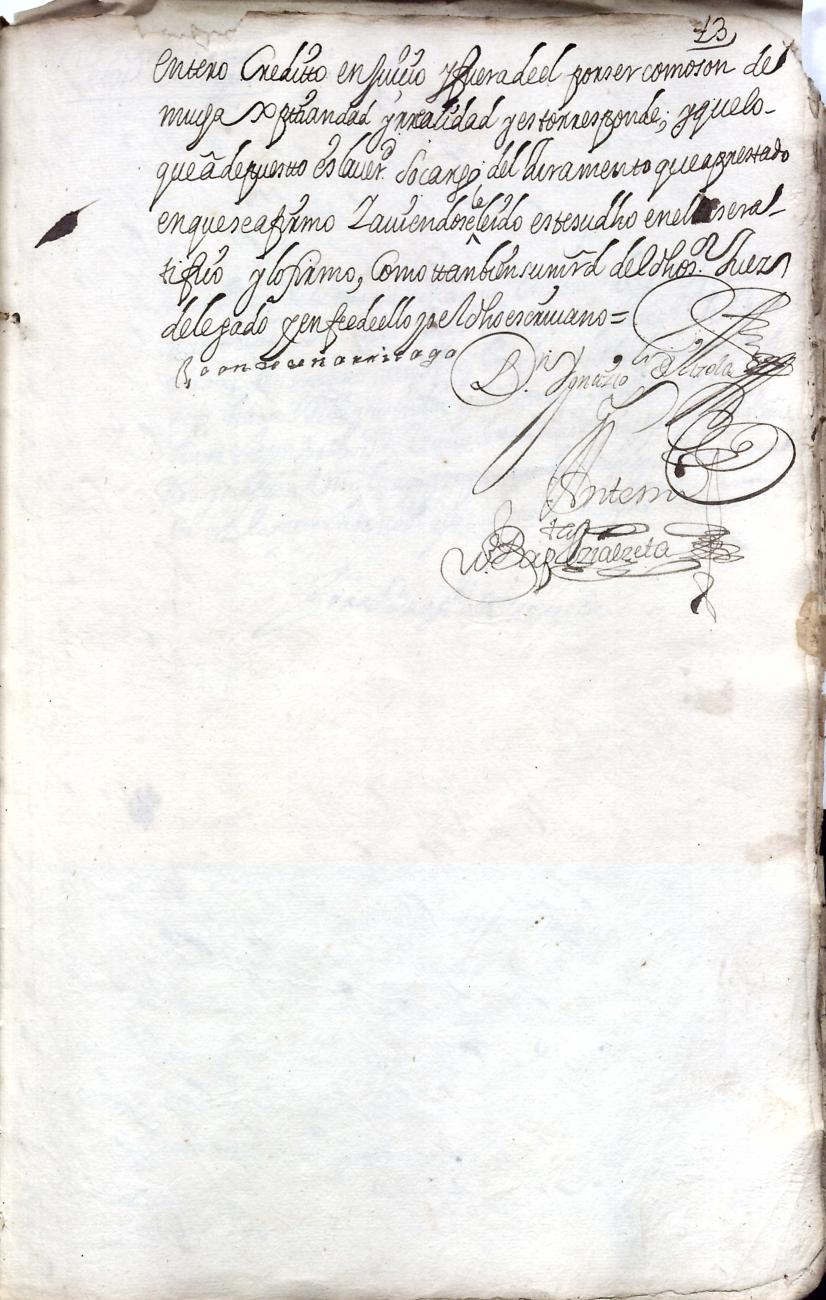 43
entero Creditto en Juiçio y fuera de el por ser como son de
mucha Xptiandad y rrealidad y esto rresponde; y que lo
que â depuesto es la uer.d so cargo del Juramento que a prestado
en que se afirmo Y auiendosele leido este su dho en el se rra
tifico y lo firmo, Como ttanbien su mrd del dho s.r Juez
delegado y en fee de ello yo el dho escriuano =
D.n Ygnaçio de
Antemi